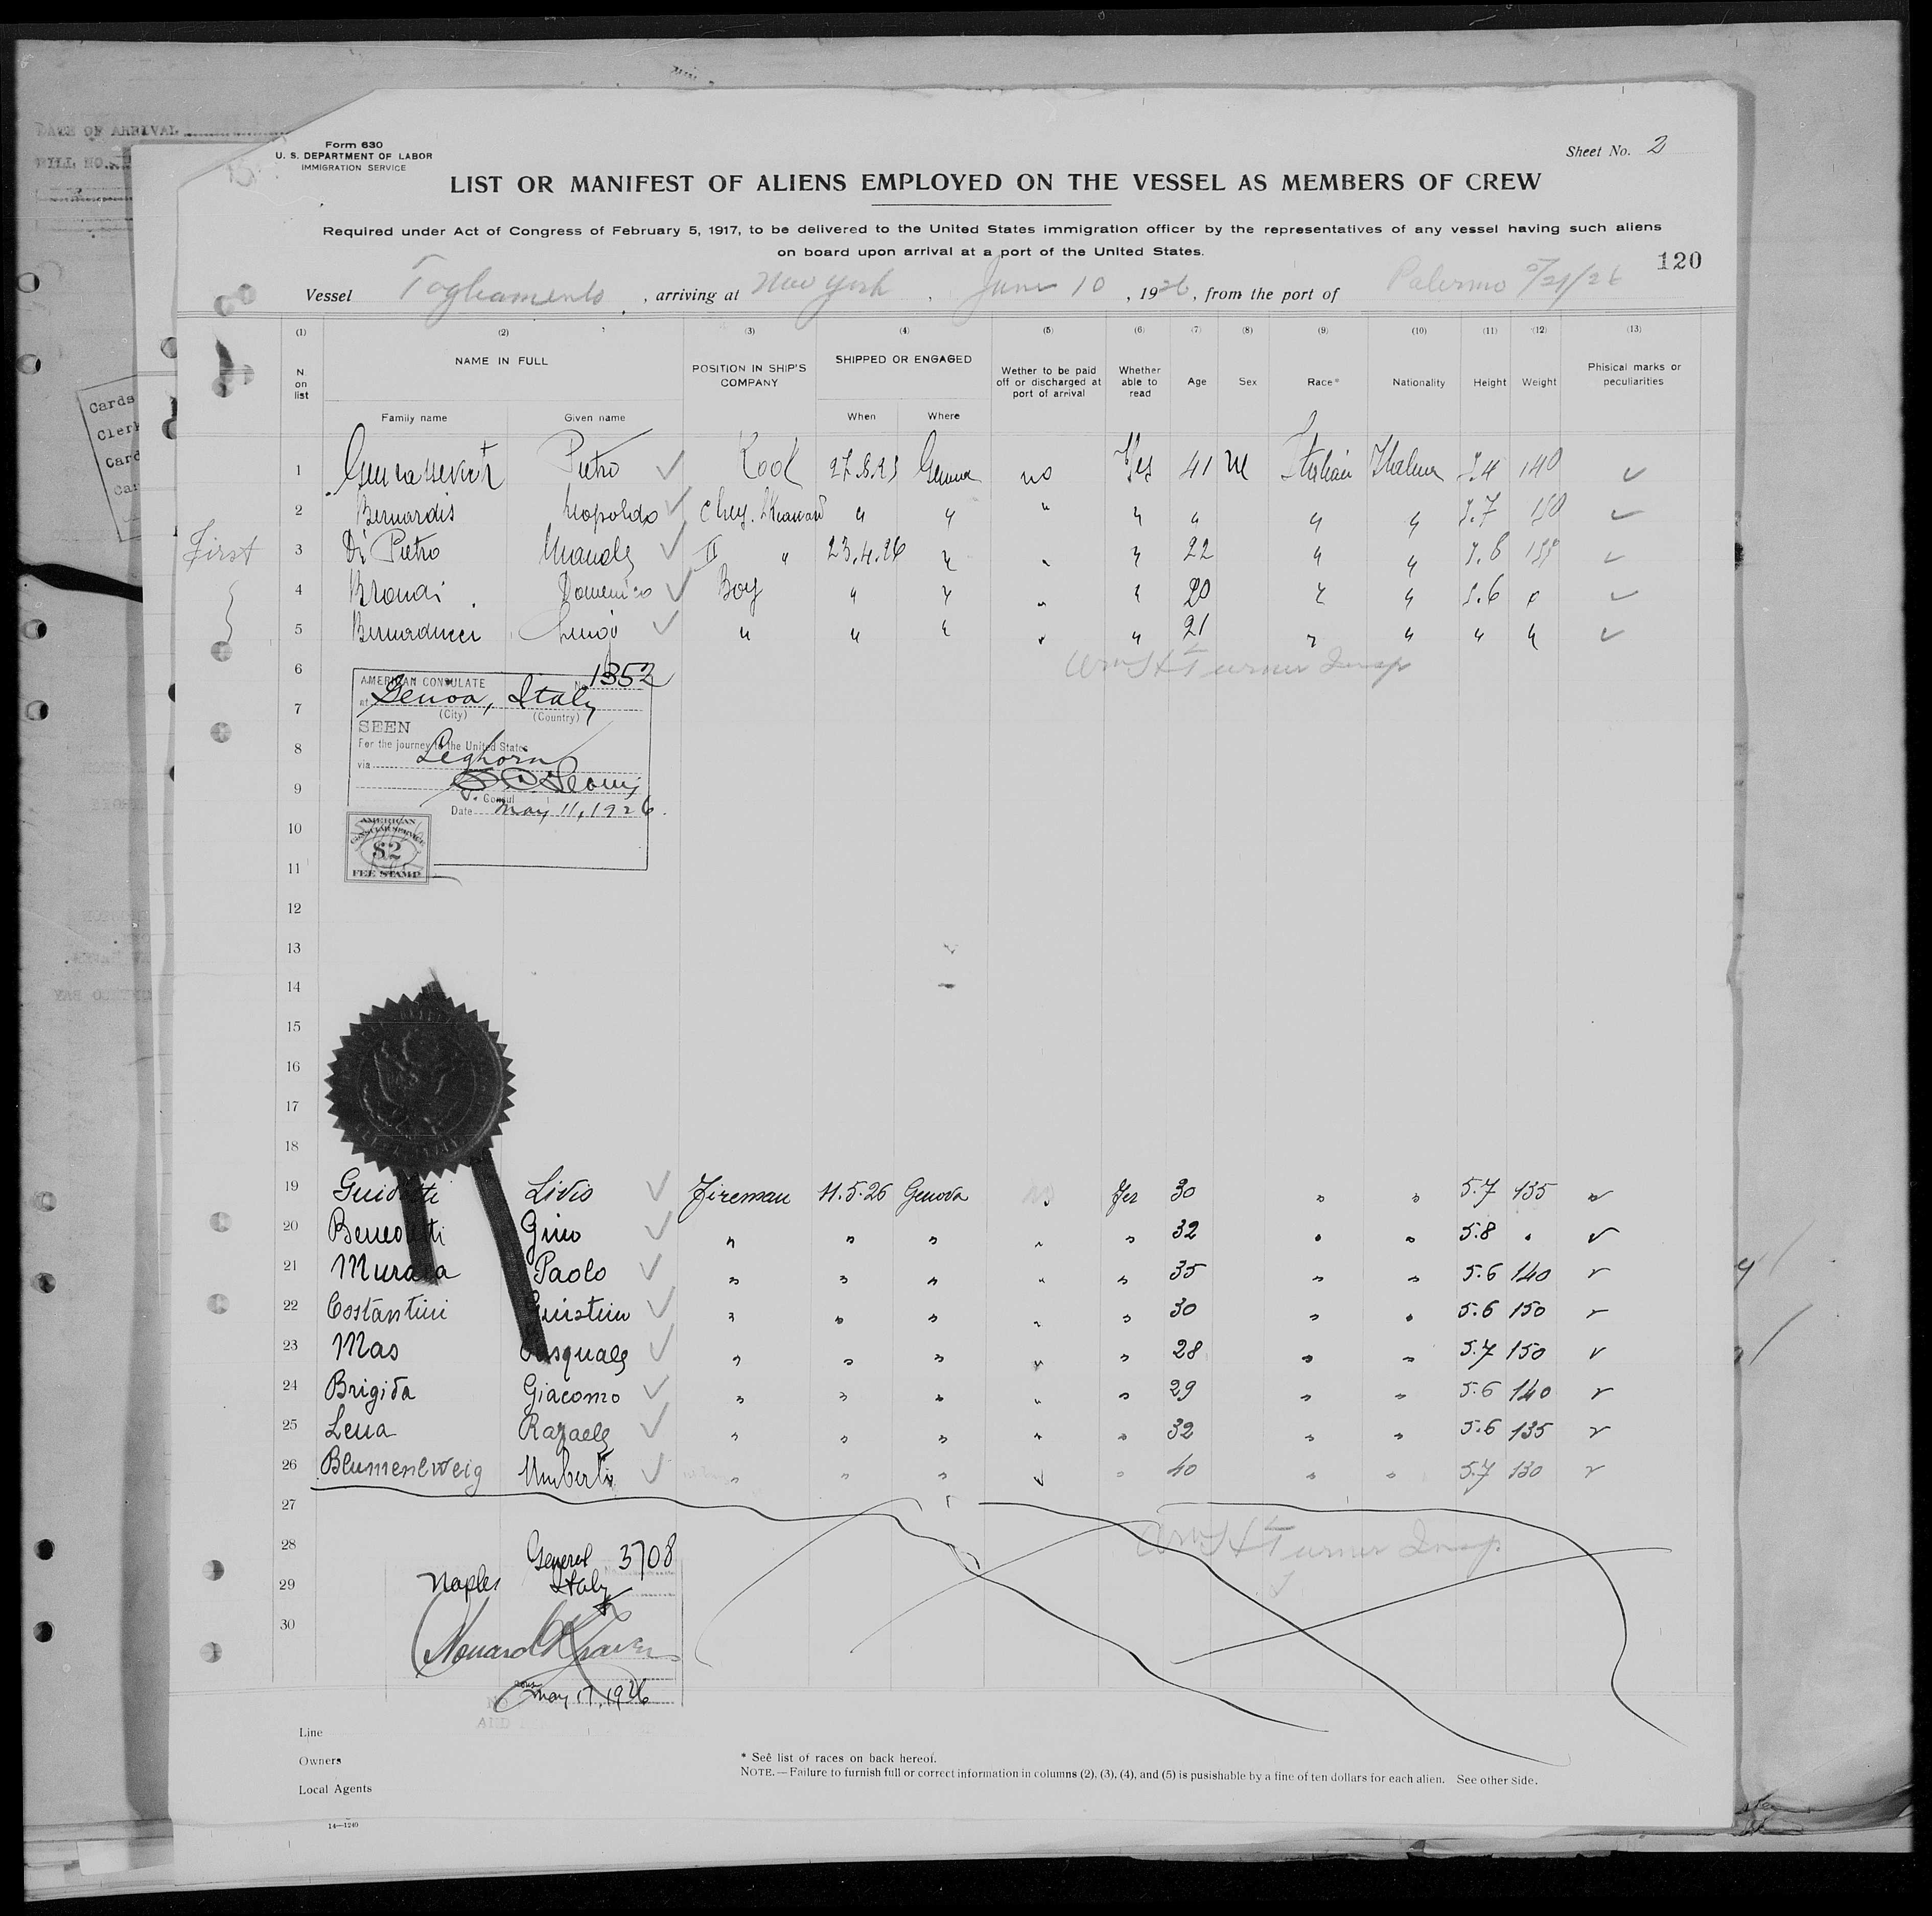 DATE OF ARRIVAL
Form 630
U. S. DEPARTMENT OF LABOR
IMMIGRATION SERVICE
Sheet No. 2
LIST OR MANIFEST OF ALIENS EMPLOYED ON THE VESSEL AS MEMBERS OF CREW
Required under Act of Congress of February 5, 1917, to be delivered to the United States immigration officer by the representatives of any vessel having such aliens
on board upon arrival at a port of the United States.
120
Vessel Tagliamento, arriving at New York, June 10, 1926, from the port of Palermo 5/21/26
(1) (2) (3) (4) (5) (6) (7) (8) (9) (10) (11) (12) (13)
N. on list NAME IN FULL POSITION IN SHIP'S COMPANY SHIPPED OR ENGAGED Wether to be paid off or discharged at port of arrival Whether able to read Age Sex Race* Nationality Height Weight Phisical marks or peculiarities
Family name Given name When Where
1 Pietro Genova no Yes 41 M Italian Italian 5.4 140 ✓
2 Bernardis Leopoldo " " " " " " " 5.7 150 ✓
First 3 Di Pietro II " 23.4.26 " " " 22 " " 5.6 ✓
4 Domenico Boy " " " " 20 " " 5.6 " ✓
5 Bernaducci " " " " " 21 " " " " ✓
6 Wm H Turner Insp
AMERICAN CONSULATE No. 1352
7 at Genoa, Italy
(City) (Country)
SEEN
8 For the journey to the United States
via Leghorn
9
Consul
Date May 11, 1926.
10 AMERICAN
CONSULAR SERVICE
$2
11 FEE STAMP
12
13
14
15
16
17
18
19 Guidotti Livio ✓ Fireman 11.5.26 Genova no Yes 30 " " 5.7 135 ✓
20 Benedetti Gino ✓ " " " " " 32 " " 5.8 " ✓
21 Murada Paolo ✓ " " " " " 35 " " 5.6 140 ✓
22 Costantini ✓ " " " " " 30 " " 5.6 150 ✓
23 Mas Pasquale ✓ " " " " " 28 " " 5.7 150 ✓
24 Brigida Giacomo ✓ " " " " " 29 " " 5.6 140 ✓
25 Lena Rafaele ✓ " " " " " 32 " " 5.6 135 ✓
26 Umberto ✓ " " " " 40 " " 5.7 130 ✓
27
28 General 3708 Wm H Turner Insp.
29 Naples Italy
30
May 17, 1926
Line
Owners
Local Agents
* Seê list of races on back hereof.
NOTE.—Failure to furnish full or correct information in columns (2), (3), (4), and (5) is pusishable by a fine of ten dollars for each alien. See other side.
14—1240